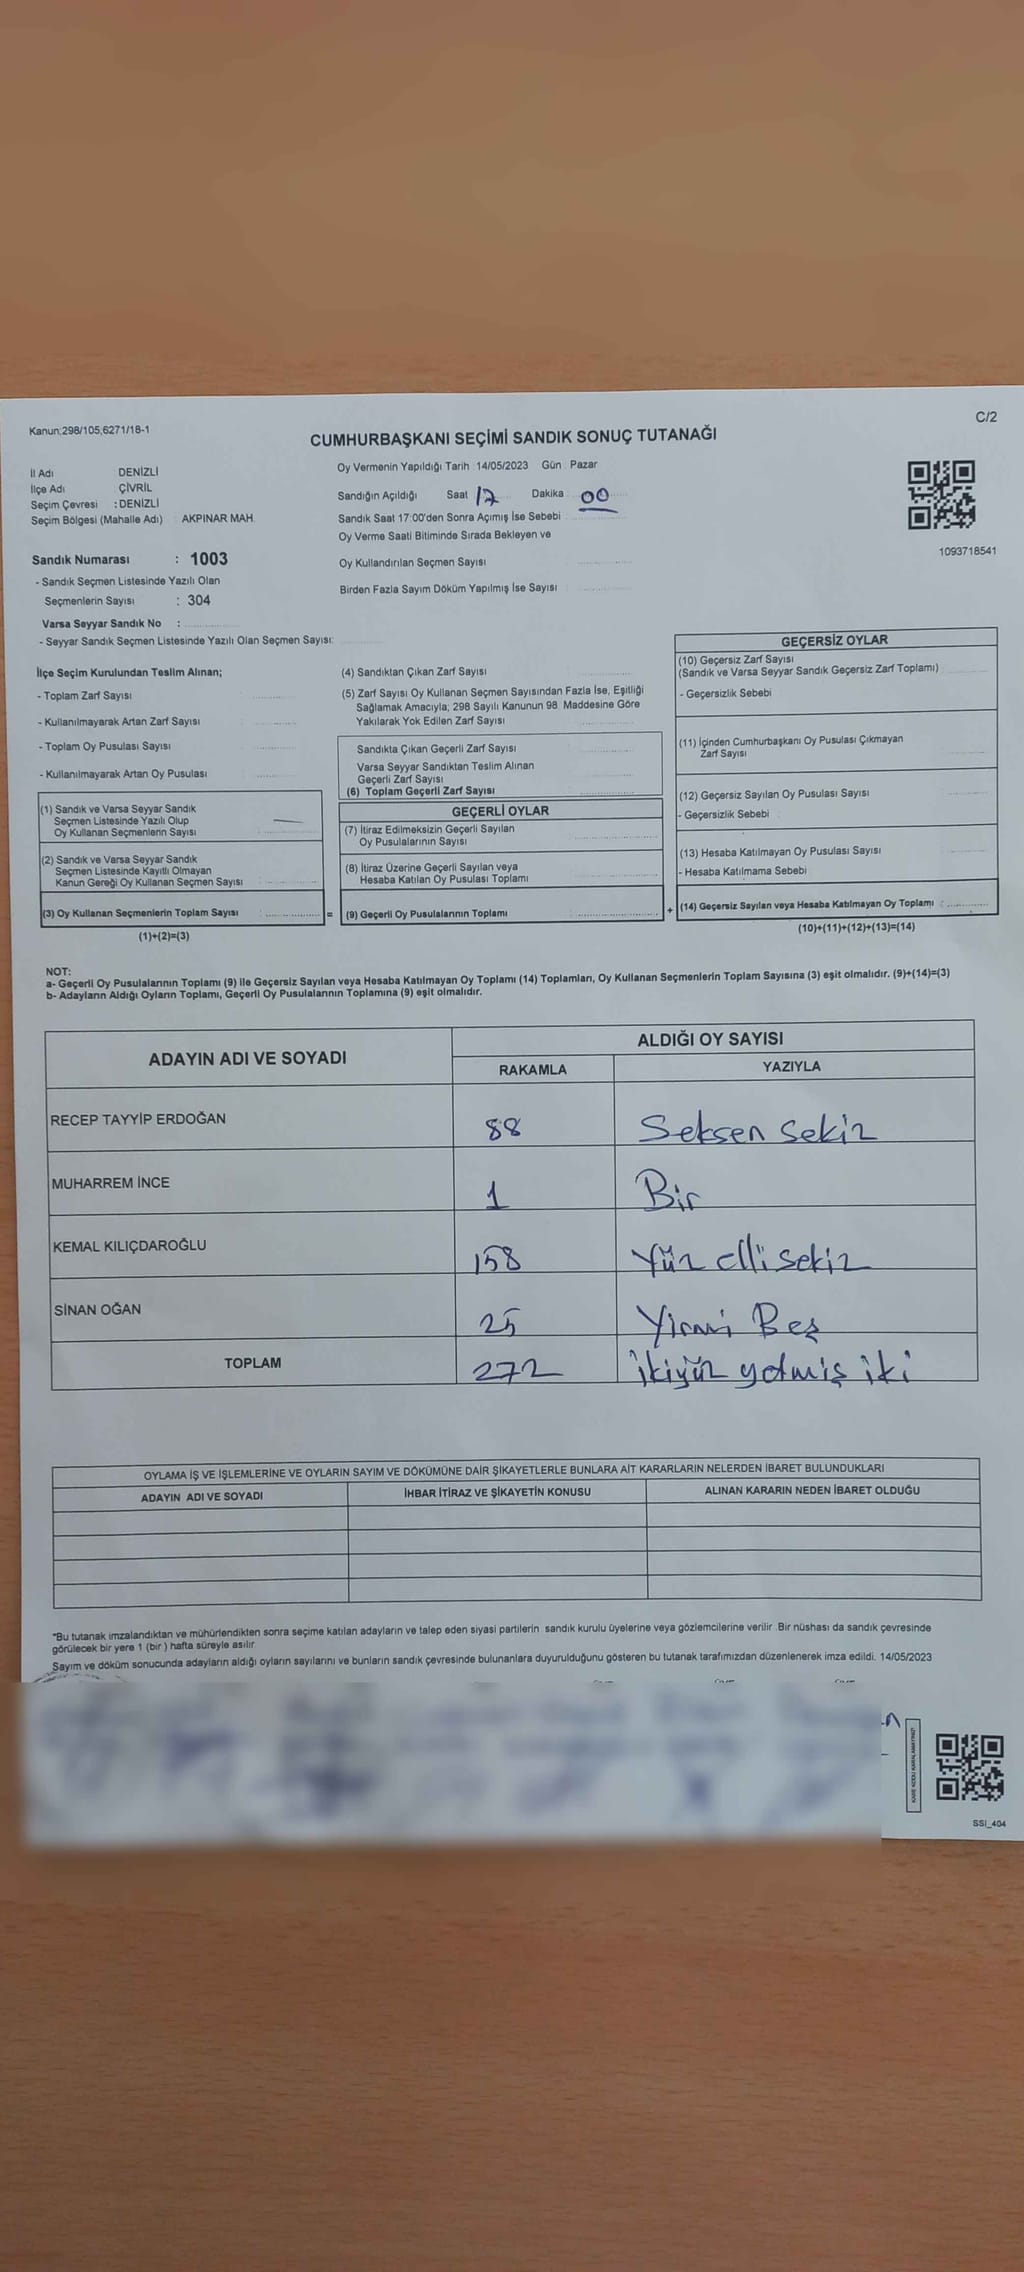 Kanun;298/105,6271/18-1
C/2
CUMHURBAŞKANI SEÇİMİ SANDIK SONUÇ TUTANAĞI
İl Adı DENİZLİ
İlçe Adı ÇİVRİL
Seçim Çevresi : DENİZLİ
Seçim Bölgesi (Mahalle Adı) AKPINAR MAH.
Oy Vermenin Yapıldığı Tarih 14/05/2023 Gün : Pazar
Sandığın Açıldığı Saat 17 Dakika 00
Sandık Saat 17:00'den Sonra Açımış İse Sebebi
Oy Verme Saati Bitiminde Sırada Bekleyen ve
Oy Kullandırılan Seçmen Sayısı
Birden Fazla Sayım Döküm Yapılmış İse Sayısı
1093718541
Sandık Numarası : 1003
- Sandık Seçmen Listesinde Yazılı Olan
Seçmenlerin Sayısı : 304
Varsa Seyyar Sandık No :
- Seyyar Sandık Seçmen Listesinde Yazılı Olan Seçmen Sayısı:
İlçe Seçim Kurulundan Teslim Alınan;
- Toplam Zarf Sayısı
- Kullanılmayarak Artan Zarf Sayısı
- Toplam Oy Pusulası Sayısı
- Kullanılmayarak Artan Oy Pusulası
(1) Sandık ve Varsa Seyyar Sandık
Seçmen Listesinde Yazılı Olup
Oy Kullanan Seçmenlerin Sayısı
(2) Sandık ve Varsa Seyyar Sandık
Seçmen Listesinde Kayıtlı Olmayan
Kanun Gereği Oy Kullanan Seçmen Sayısı
(3) Oy Kullanan Seçmenlerin Toplam Sayısı :
(1)+(2)=(3)
(4) Sandıktan Çıkan Zarf Sayısı
(5) Zarf Sayısı Oy Kullanan Seçmen Sayısından Fazla İse, Eşitliği
Sağlamak Amacıyla; 298 Sayılı Kanunun 98. Maddesine Göre
Yakılarak Yok Edilen Zarf Sayısı
Sandıkta Çıkan Geçerli Zarf Sayısı
Varsa Seyyar Sandıktan Teslim Alınan
Geçerli Zarf Sayısı
(6) Toplam Geçerli Zarf Sayısı
GEÇERLİ OYLAR
(7) İtiraz Edilmeksizin Geçerli Sayılan
Oy Pusulalarının Sayısı
(8) İtiraz Üzerine Geçerli Sayılan veya
Hesaba Katılan Oy Pusulası Toplamı
= (9) Geçerli Oy Pusulalarının Toplamı
GEÇERSİZ OYLAR
(10) Geçersiz Zarf Sayısı
(Sandık ve Varsa Seyyar Sandık Geçersiz Zarf Toplamı)
- Geçersizlik Sebebi
(11) İçinden Cumhurbaşkanı Oy Pusulası Çıkmayan
Zarf Sayısı
(12) Geçersiz Sayılan Oy Pusulası Sayısı
- Geçersizlik Sebebi
(13) Hesaba Katılmayan Oy Pusulası Sayısı
- Hesaba Katılmama Sebebi
+ (14) Geçersiz Sayılan veya Hesaba Katılmayan Oy Toplamı :
(10)+(11)+(12)+(13)=(14)
NOT:
a- Geçerli Oy Pusulalarının Toplamı (9) ile Geçersiz Sayılan veya Hesaba Katılmayan Oy Toplamı (14) Toplamları, Oy Kullanan Seçmenlerin Toplam Sayısına (3) eşit olmalıdır. (9)+(14)=(3)
b- Adayların Aldığı Oyların Toplamı, Geçerli Oy Pusulalarının Toplamına (9) eşit olmalıdır.
ADAYIN ADI VE SOYADI ALDIĞI OY SAYISI
RAKAMLA YAZIYLA
RECEP TAYYİP ERDOĞAN 88 Seksen sekiz
MUHARREM İNCE 1 Bir
KEMAL KILIÇDAROĞLU 158 Yüz elli sekiz
SİNAN OĞAN 25 Yirmi Beş
TOPLAM 272 ikiyüz yetmiş iki
OYLAMA İŞ VE İŞLEMLERİNE VE OYLARIN SAYIM VE DÖKÜMÜNE DAİR ŞİKAYETLERLE BUNLARA AİT KARARLARIN NELERDEN İBARET BULUNDUKLARI
ADAYIN ADI VE SOYADI İHBAR İTİRAZ VE ŞİKAYETİN KONUSU ALINAN KARARIN NEDEN İBARET OLDUĞU
"Bu tutanak imzalandıktan ve mühürlendikten sonra seçime katılan adayların ve talep eden siyasi partilerin sandık kurulu üyelerine veya gözlemcilerine verilir. Bir nüshası da sandık çevresinde
görülecek bir yere 1 (bir ) hafta süreyle asılır.
Sayım ve döküm sonucunda adayların aldığı oyların sayılarını ve bunların sandık çevresinde bulunanlara duyurulduğunu gösteren bu tutanak tarafımızdan düzenlenerek imza edildi. 14/05/2023
KARE KODU KARALAMAYINIZ!
SSI_404